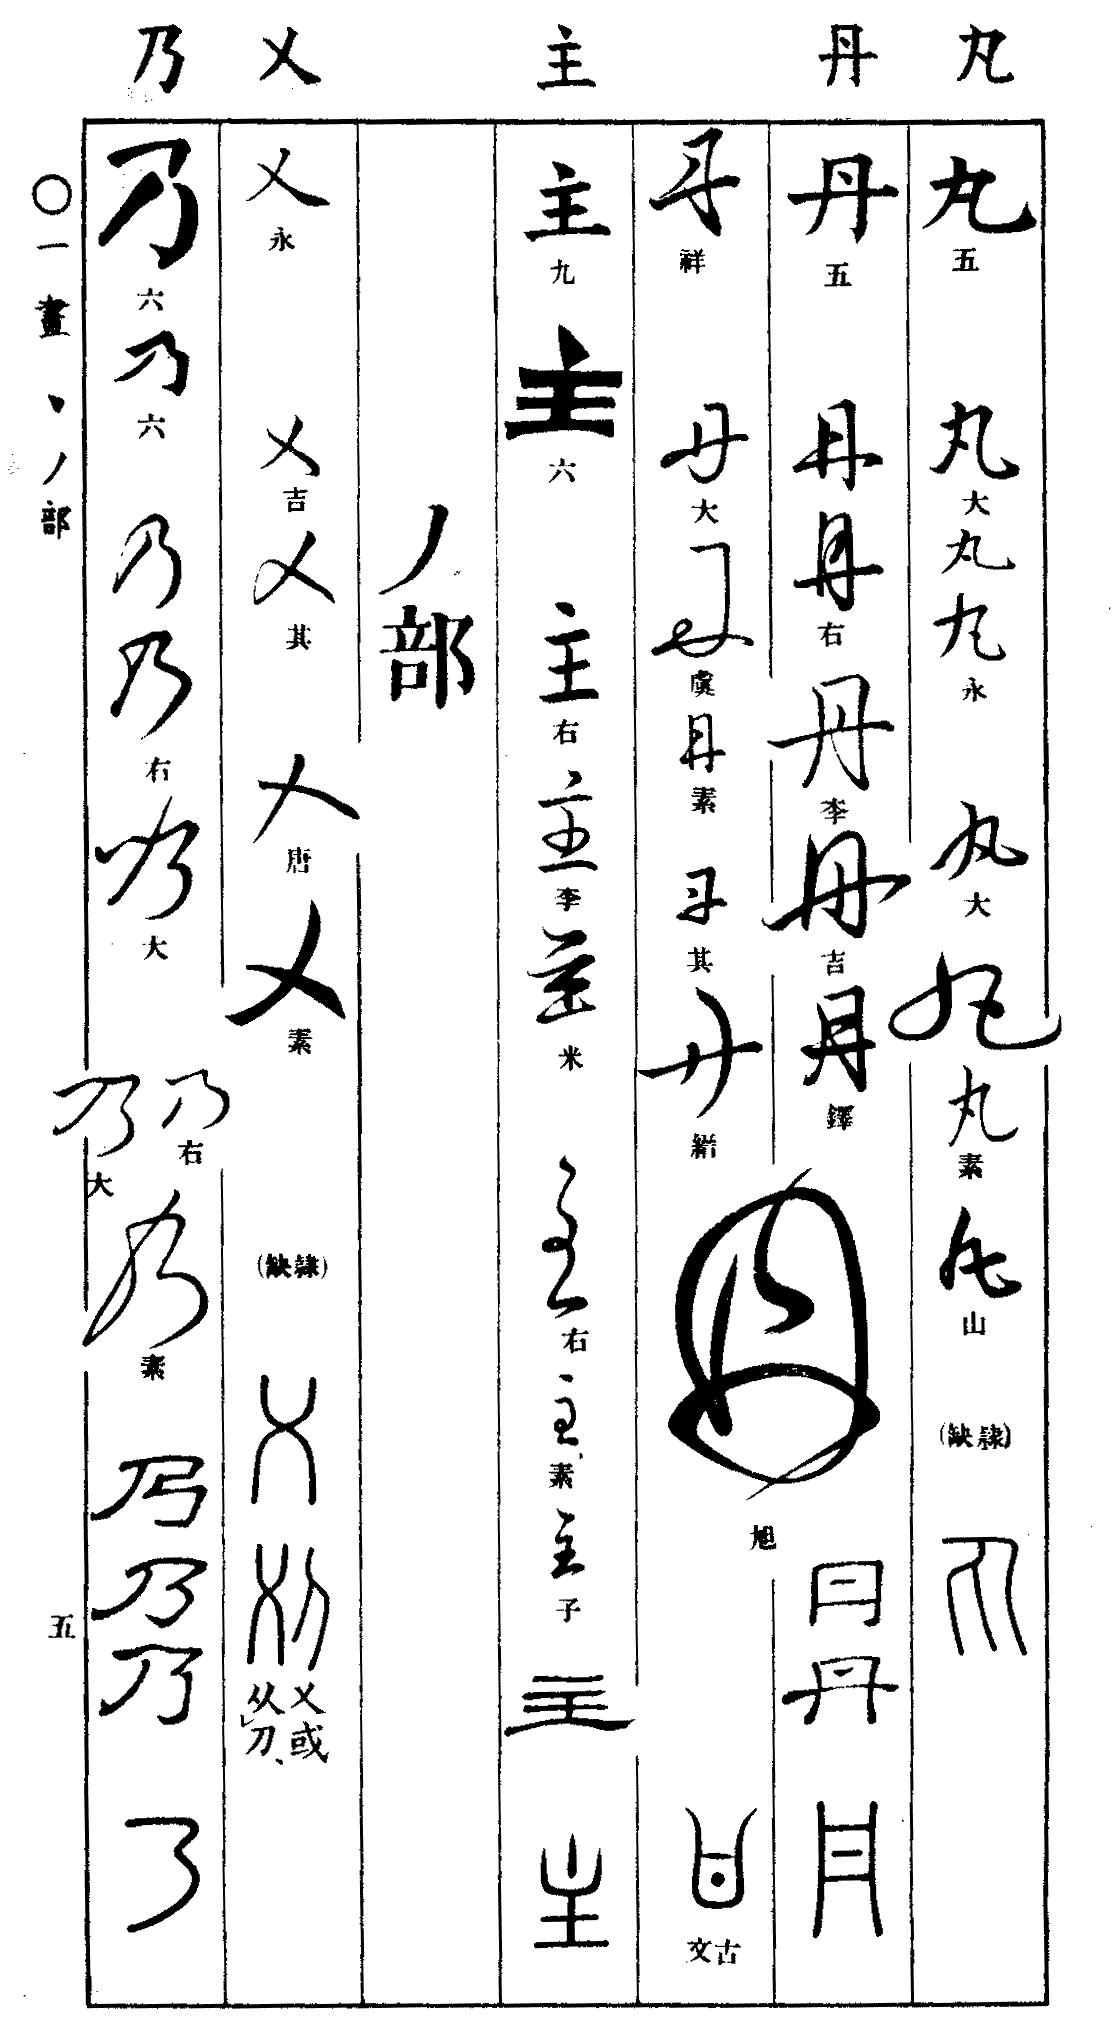 丸
丹
主
乂
乃
丸 五 丸 大 丸 丸 永 丸 大 丸 丸 素 丸 山 (隸缺) 丸
丹 五 丹 丹 右 丹 李 丹 吉 丹 鐸 丹 丹 丹
丹 祥 丹 大 丹 虞 丹 素 丹 其 丹 丹 旭 丹 古文
主 九 主 六 主 右 主 李 主 米 主 右 主 素 主 子 主 主
丿部
乂 永 乂 吉 乂 其 乂 唐 乂 素 (隸缺) 乂 刈 乂或从刀
乃 六 乃 六 乃 乃 右 乃 大 乃 右 乃 大 乃 素 乃 乃 乃 乃
〇一畫 丶丿部 五